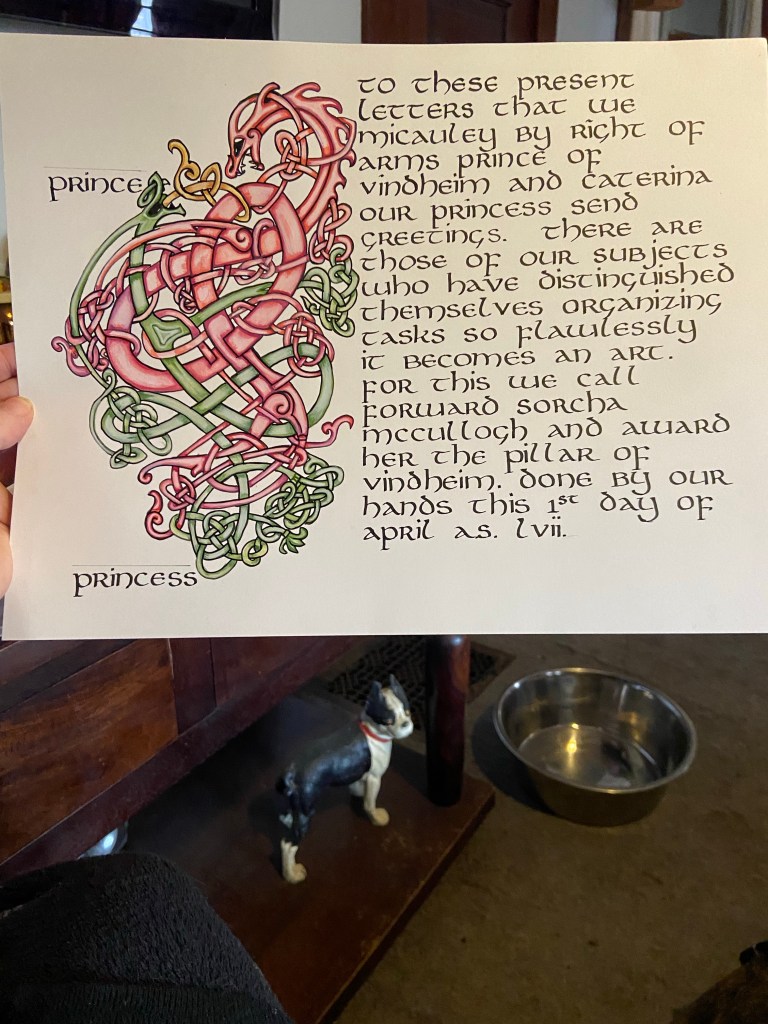 prince
princess
to these present
letters that we
micauley by right of
arms prince of
vindheim and caterina
our princess send
greetings. there are
those of our subjects
who have distinguished
themselves organizing
tasks so flawlessly
it becomes an art.
for this we call
forward sorcha
mccullogh and award
her the pillar of
vindheim. done by our
hands this 1st day of
april a.s. lvii.